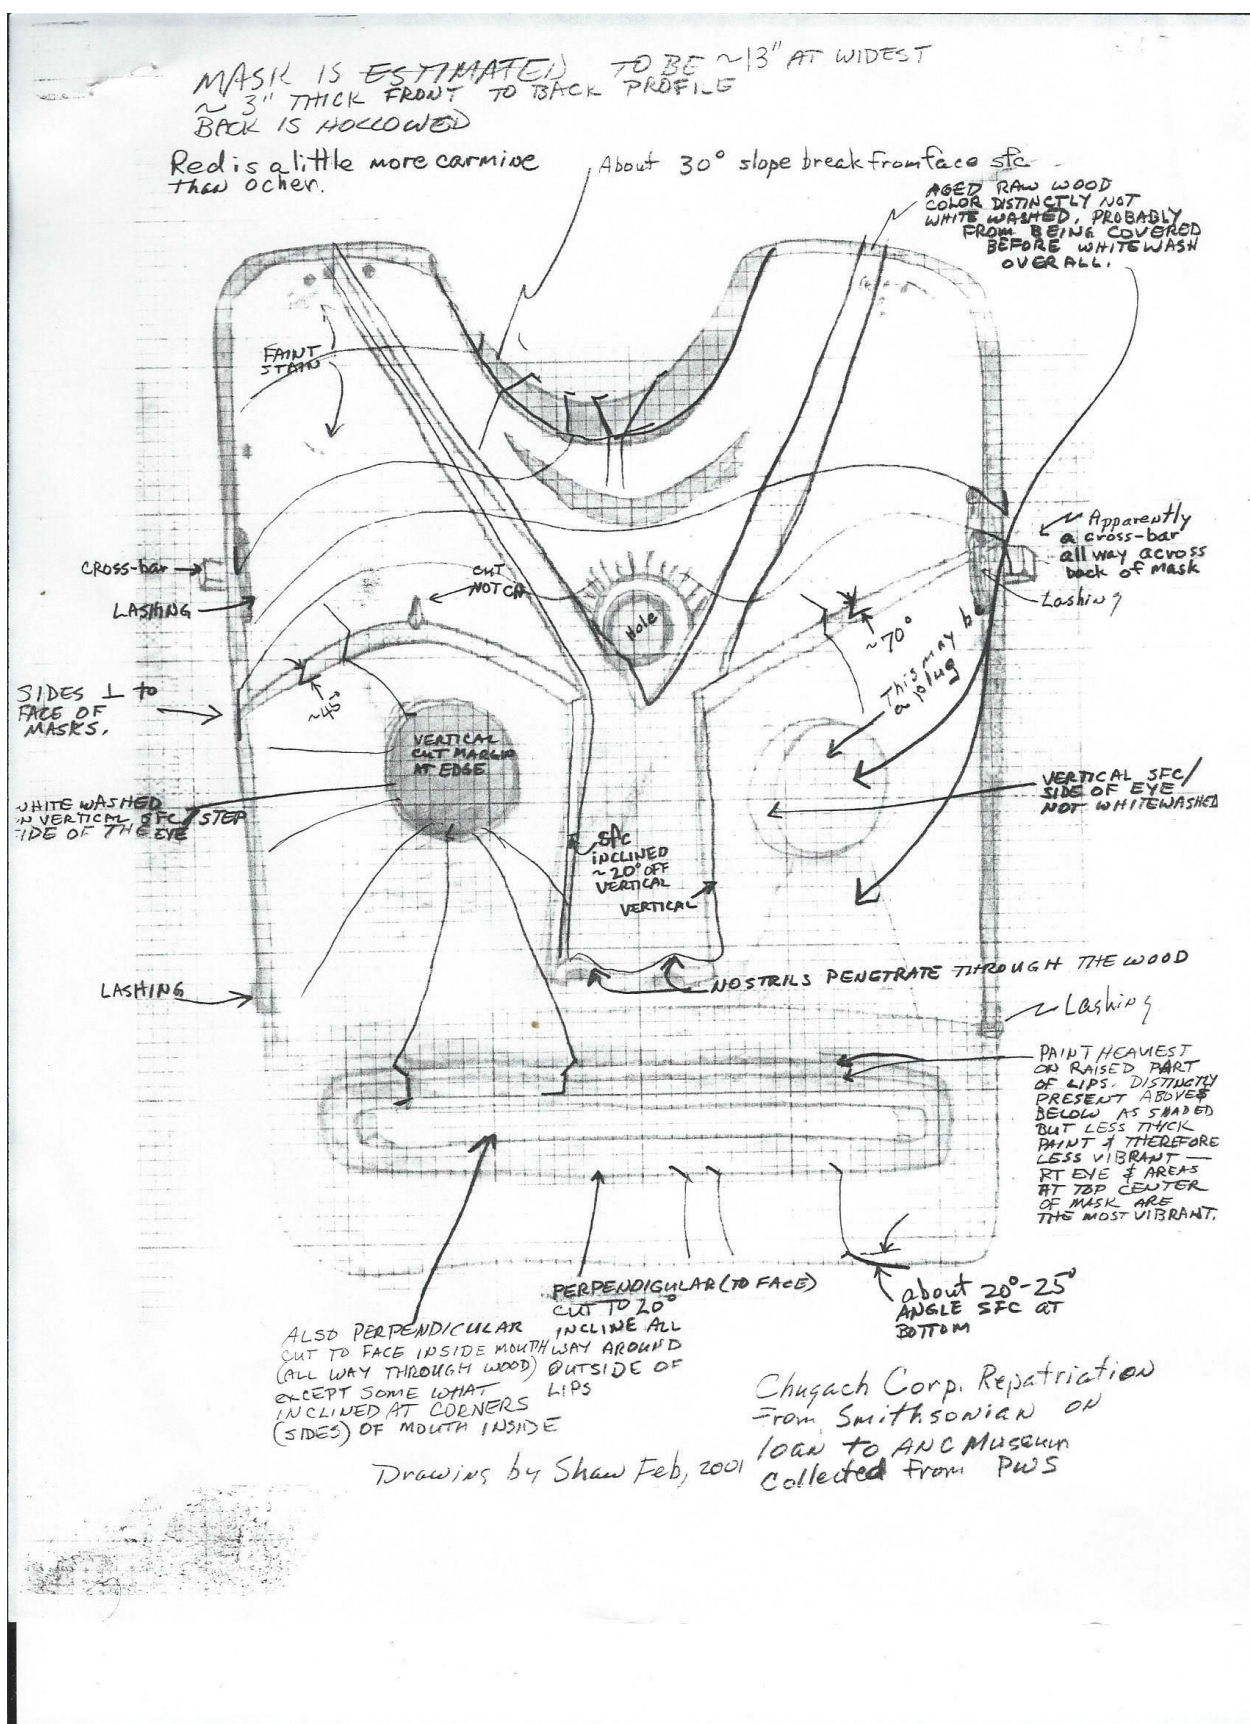 MASK IS ESTIMATED TO BE ~13" AT WIDEST
~ 3" THICK FRONT TO BACK PROFILE
BACK IS HOLLOWED
Red is a little more carmine
than ocher.
About 30° slope break from face sfc
AGED RAW WOOD
COLOR DISTINCTLY NOT
WHITE WASHED, PROBABLY
FROM BEING COVERED
BEFORE WHITEWASH
OVERALL.
FAINT
STAIN
CROSS-bar
LASHING
CUT
NOTCH
Hole
Apparently
a cross-bar
all way across
back of mask
Lashing
~70°
This may b
a plug
SIDES ⊥ to
FACE OF
MASKS.
~45°
VERTICAL
CUT MARGIN
AT EDGE
WHITE WASHED
ON VERTICAL SFC/STEP
SIDE OF THE EYE
VERTICAL SFC/
SIDE OF EYE
NOT WHITEWASHED
SFC
INCLINED
~20° OFF
VERTICAL
VERTICAL
NOSTRILS PENETRATE THROUGH THE WOOD
LASHING
Lashing
PAINT HEAVIEST
ON RAISED PART
OF LIPS. DISTINCTLY
PRESENT ABOVE &
BELOW AS SHADED
BUT LESS THICK
PAINT & THEREFORE
LESS VIBRANT —
RT EYE & AREAS
AT TOP CENTER
OF MASK ARE
THE MOST VIBRANT.
PERPENDIGULAR (TO FACE)
CUT TO 20°
INCLINE ALL
WAY AROUND
OUTSIDE OF
LIPS
about 20°-25°
ANGLE SFC AT
BOTTOM
ALSO PERPENDICULAR
CUT TO FACE INSIDE MOUTH
(ALL WAY THROUGH WOOD)
EXCEPT SOME WHAT
INCLINED AT CORNERS
(SIDES) OF MOUTH INSIDE
Drawing by Shaw Feb, 2001
Chugach Corp. Repatriation
From Smithsonian on
loan to ANC Museum
Collected from PWS